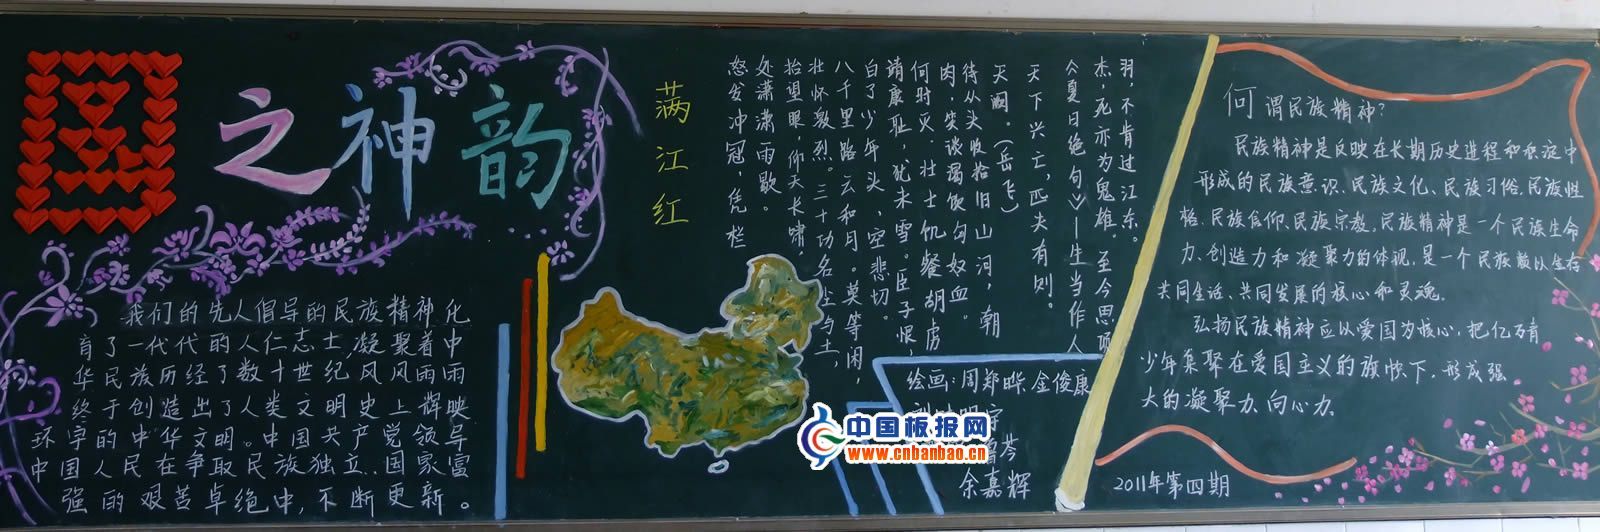 国之神韵
我们的先人倡导的民族精神化
育了一代代的人仁志士,凝聚着中
华民族历经了数十世纪风风雨雨
终于创造出了人类文明史上辉映
环宇的中华文明。中国共产党领导
中国人民在争取民族独立、国家富
强的艰苦卓绝中,不断更新。
满江红
怒发冲冠,凭栏
处潇潇雨歇。
抬望眼,仰天长啸,
壮怀激烈。三十功名尘与土,
八千里路云和月。莫等闲,
白了少年头,空悲切。
请康耻,犹未雪。臣子恨,
何时灭。壮士饥餐胡虏
肉,笑谈渴饮匈奴血。
待从头收拾旧山河,朝
天阙。(岳飞)
天下兴亡,匹夫有则。
《夏日绝句》—生当作人
杰,死亦为鬼雄,至今思项
羽,不肯过江东。
绘画:周郑晔 金俊康
宇
芩
余嘉辉
中国板报网
www.cnbanbao.cn
何谓民族精神?
民族精神是反映在长期历史进程和积淀中
形成的民族意识、民族文化、民族习俗、民族性
格、民族信仰、民族宗教,民族精神是一个民族生命
力、创造力和凝聚力的体现,是一个民族赖以生存
共同生活、共同发展的核心和灵魂。
弘扬民族精神应以爱国为核心,把亿万青
少年集聚在爱国主义的旗帜下,形成强
大的凝聚力、向心力。
2011年第四期